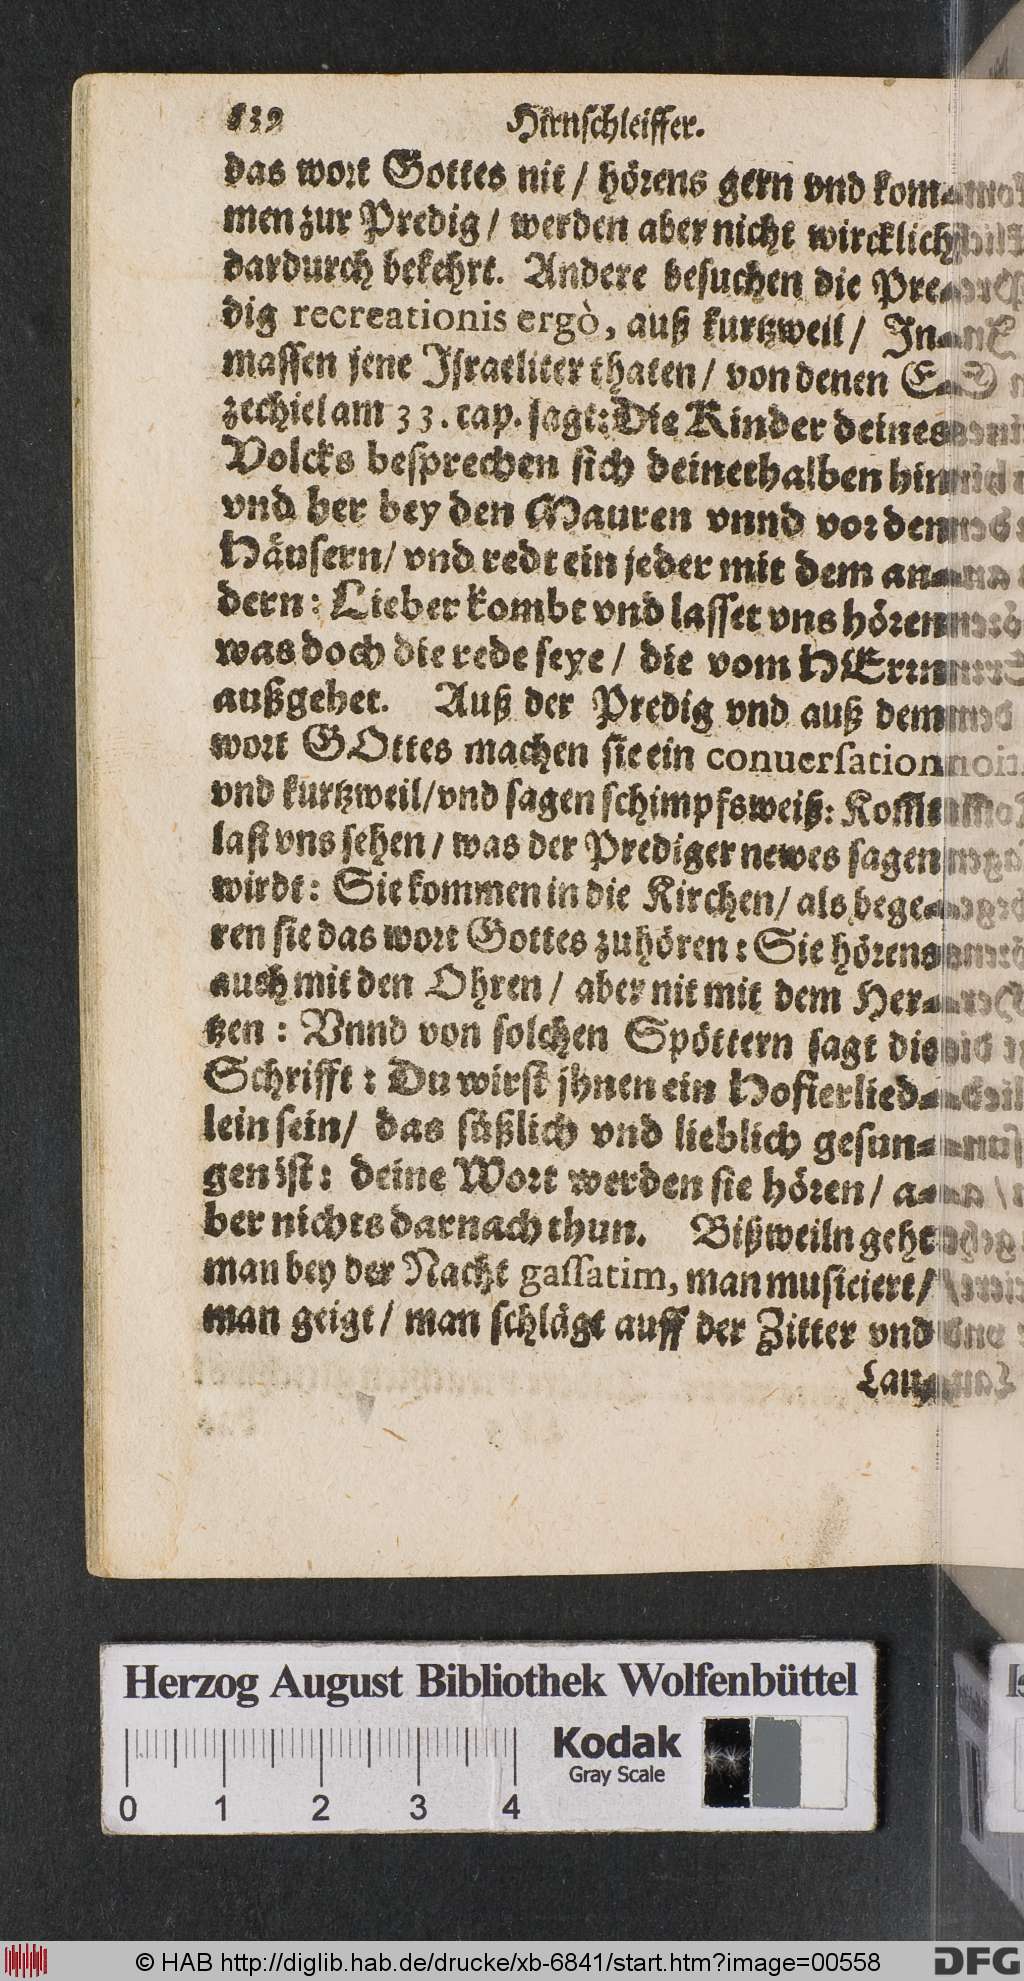 539 Hirnschleiffer.
das wort Gottes nit / hörens gern vnd kom-
men zur Predig / werden aber nicht wircklich
dardurch bekehrt. Andere besuchen die Pre-
dig recreationis ergò, auß kurtzweil / In-
massen jene Israeliter thaten / von denen E-
zechiel am 33. cap. sagt: Die Kinder deines
Volcks besprechen sich deinethalben hin
vnd her bey den Mauren vnnd vor den
Häusern / vnd redt ein jeder mit dem an-
dern: Lieber kombt vnd lasset vns hören
was doch die rede seye / die vom HErrn
außgehet. Auß der Predig vnd auß dem
wort GOttes machen sie ein conuersation
vnd kurtzweil / vnd sagen schimpfsweiß: Komt
last vns sehen / was der Prediger newes sagen
wirdt: Sie kommen in die Kirchen / als bege-
ren sie das wort Gottes zuhören: Sie hörens
auch mit den Ohren / aber nit mit dem Her-
tzen: Vnnd von solchen Spöttern sagt die
Schrifft: Du wirst jhnen ein Hofierlied-
lein sein / das süßlich vnd lieblich gesun-
gen ist: deine Wort werden sie hören / a-
ber nichts darnach thun. Bißweiln geht
man bey der Nacht gassatim, man musiciert /
man geigt / man schlägt auff der Zitter vnd
Lau-
Herzog August Bibliothek Wolfenbüttel
Kodak
Gray Scale
0 1 2 3 4
© HAB http://diglib.hab.de/drucke/xb-6841/start.htm?image=00558
DFG